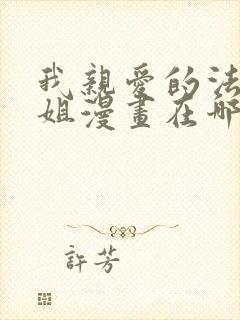 我親愛的法
姐漫畫在哪
許芳